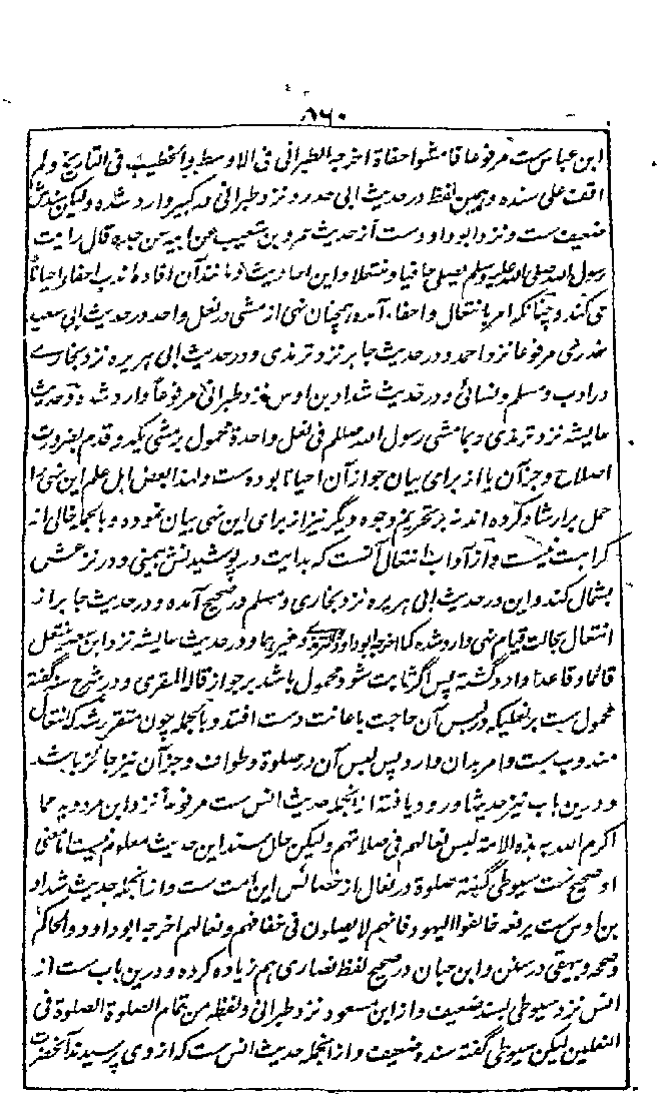 ۸۶۰
ابن عباس ست مرفوعا قامشوا حفاة اخرجه الطبرانی فی الاوسط والخطیب فی التاریخ ولم
اقف علی سنده وبهمین لفظ در حدیث ابی حدرد نزد طبرانی در کبیر وارد شده ولیکن سندش
ضعیف ست ونزد ابو داود ست از حدیث عمرو بن شعیب عن ابیه عن جده قال رایت
رسول الله صلی الله علیه وسلم یصلی حافیا ومنتعلا واین احادیث و مانند آن افاده ندب احفا احیانا
می کند وچنانکه امر بانتعال واحفاء آمده همچنان نهی از مشی در نعل واحد در حدیث ابی سعید
خدری مرفوعا نزد احمد ودر حدیث جابر نزد ترمذی ودر حدیث ابی هریره نزد بخاری
در ادب ومسلم ونسائی ودر حدیث شداد بن اوس نزد طبرانی مرفوعا وارد شده وحدیث
عایشه نزد ترمذی وبما مشی رسول الله صلعم فی نعل واحدة محمول بر مشی یک دو قدم بضرورت
اصلاح وجز آن یا از برای بیان جواز آن احیانا بوده ست ولهذا بعض اهل علم این نهی را
حمل بر ارشاد کرده اند نه بر تحریم ووجوه دیگر نیز از برای این نهی بیان نموده وبالجمله خالی از
کراهت نیست واز آداب انتعال آنست که بدایت در پوشیدنش بیمنی ودر نزعش
بشمال کند واین در حدیث ابی هریره نزد بخاری ومسلم در صحیح آمده ودر حدیث جابر از
انتعال بحالت قیام نهی وارد شده کما اخرجه ابو داود وغیرهما ودر حدیث عایشه نزد ینتعل
قائما وقاعدا وارد گشته پس اگر ثابت شود محمول باشد بر جواز قاله المقری ودر شرح سنه گفته
محمول ست بر نعلیکه در لبس آن حاجت باعانت دست افتد وبالجمله چون متقرر شد که انتعال
مندوب ست وامر بدان وارد پس لبس آن در صلوة وطواف وجز آن نیز جائز باشد
ودرین باب نیز حدیثها ورود یافته از انجمله حدیث انس ست مرفوعا نزد ابن مردویه مما
اکرم الله به هذه الامة لبس نعالهم فی صلاتهم ولیکن حال سند این حدیث معلوم نیست اما معنی
او صحیح ست سیوطی گفته صلوة در نعال از خصائص این امت ست واز انجمله حدیث شداد
بن اوس ست یرفعه خالفوا الیهود فانهم لا یصلون فی خفافهم ونعالهم اخرجه ابو داود والحاکم
وصححه وبیهقی در سنن وابن حبان در صحیح لفظ نصاری هم زیاده کرده ودرین باب ست از
انس نزد سیوطی بسند ضعیف واز ابن مسعود نزد طبرانی ولفظه من تمام الصلوة الصلوة فی
النعلین لیکن سیوطی گفته سنده ضعیف واز انجمله حدیث انس ست که از وی پرسیدند آنحضرت